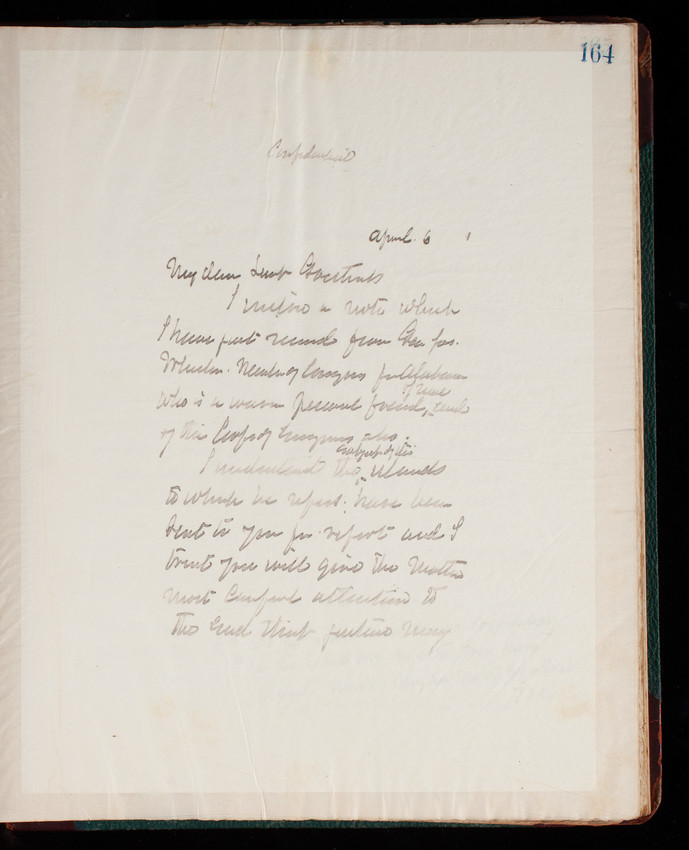 164
Confidential
April 6
My dear Lieut
I enclose a note which
I have just received from Gen Jos.
Wheeler. Member of Congress for Alabama
who is a warm personal friend, of mine and
of the Corps of Engineers also.
I understand the subject of the islands
to which he refers, have been
sent to you for report and I
trust you will give the matter
most careful attention to
the end that justice may